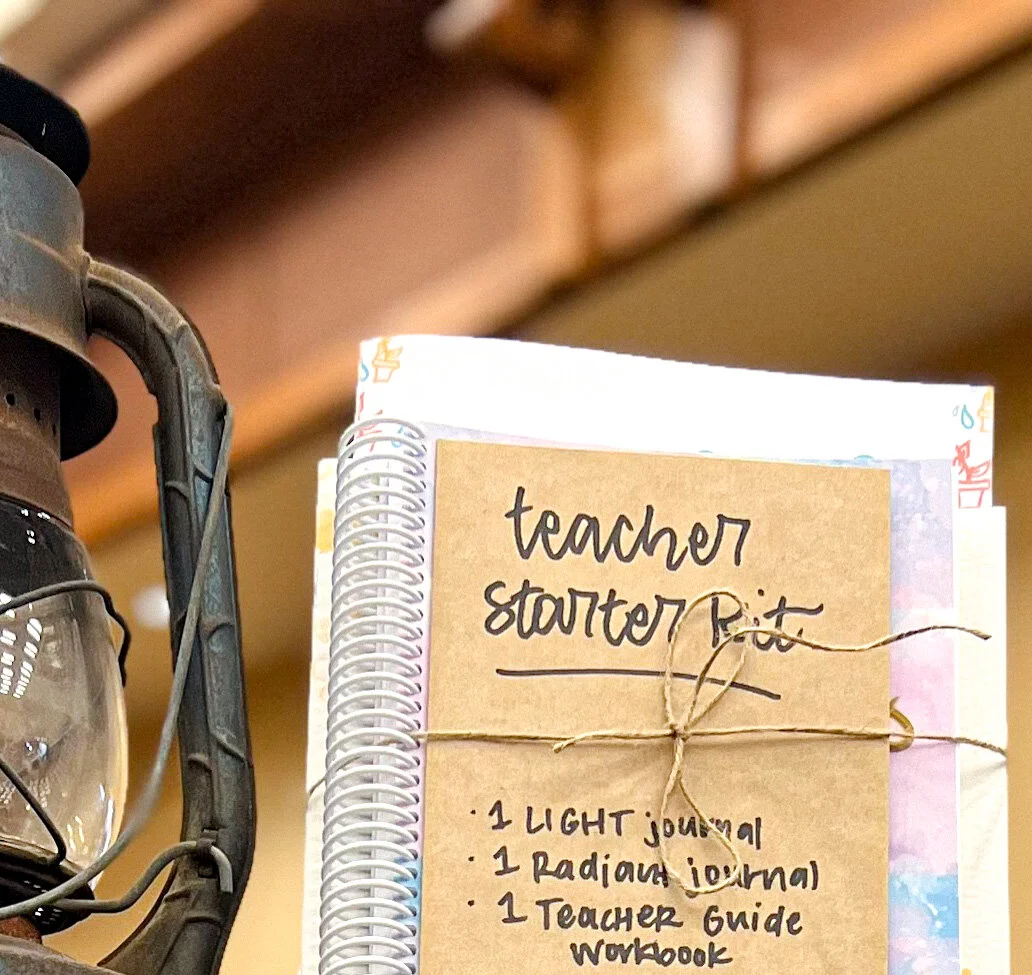 teacher
starter kit
· 1 LIGHT journal
· 1 Radiant journal
· 1 TeacHer Guide
workbook